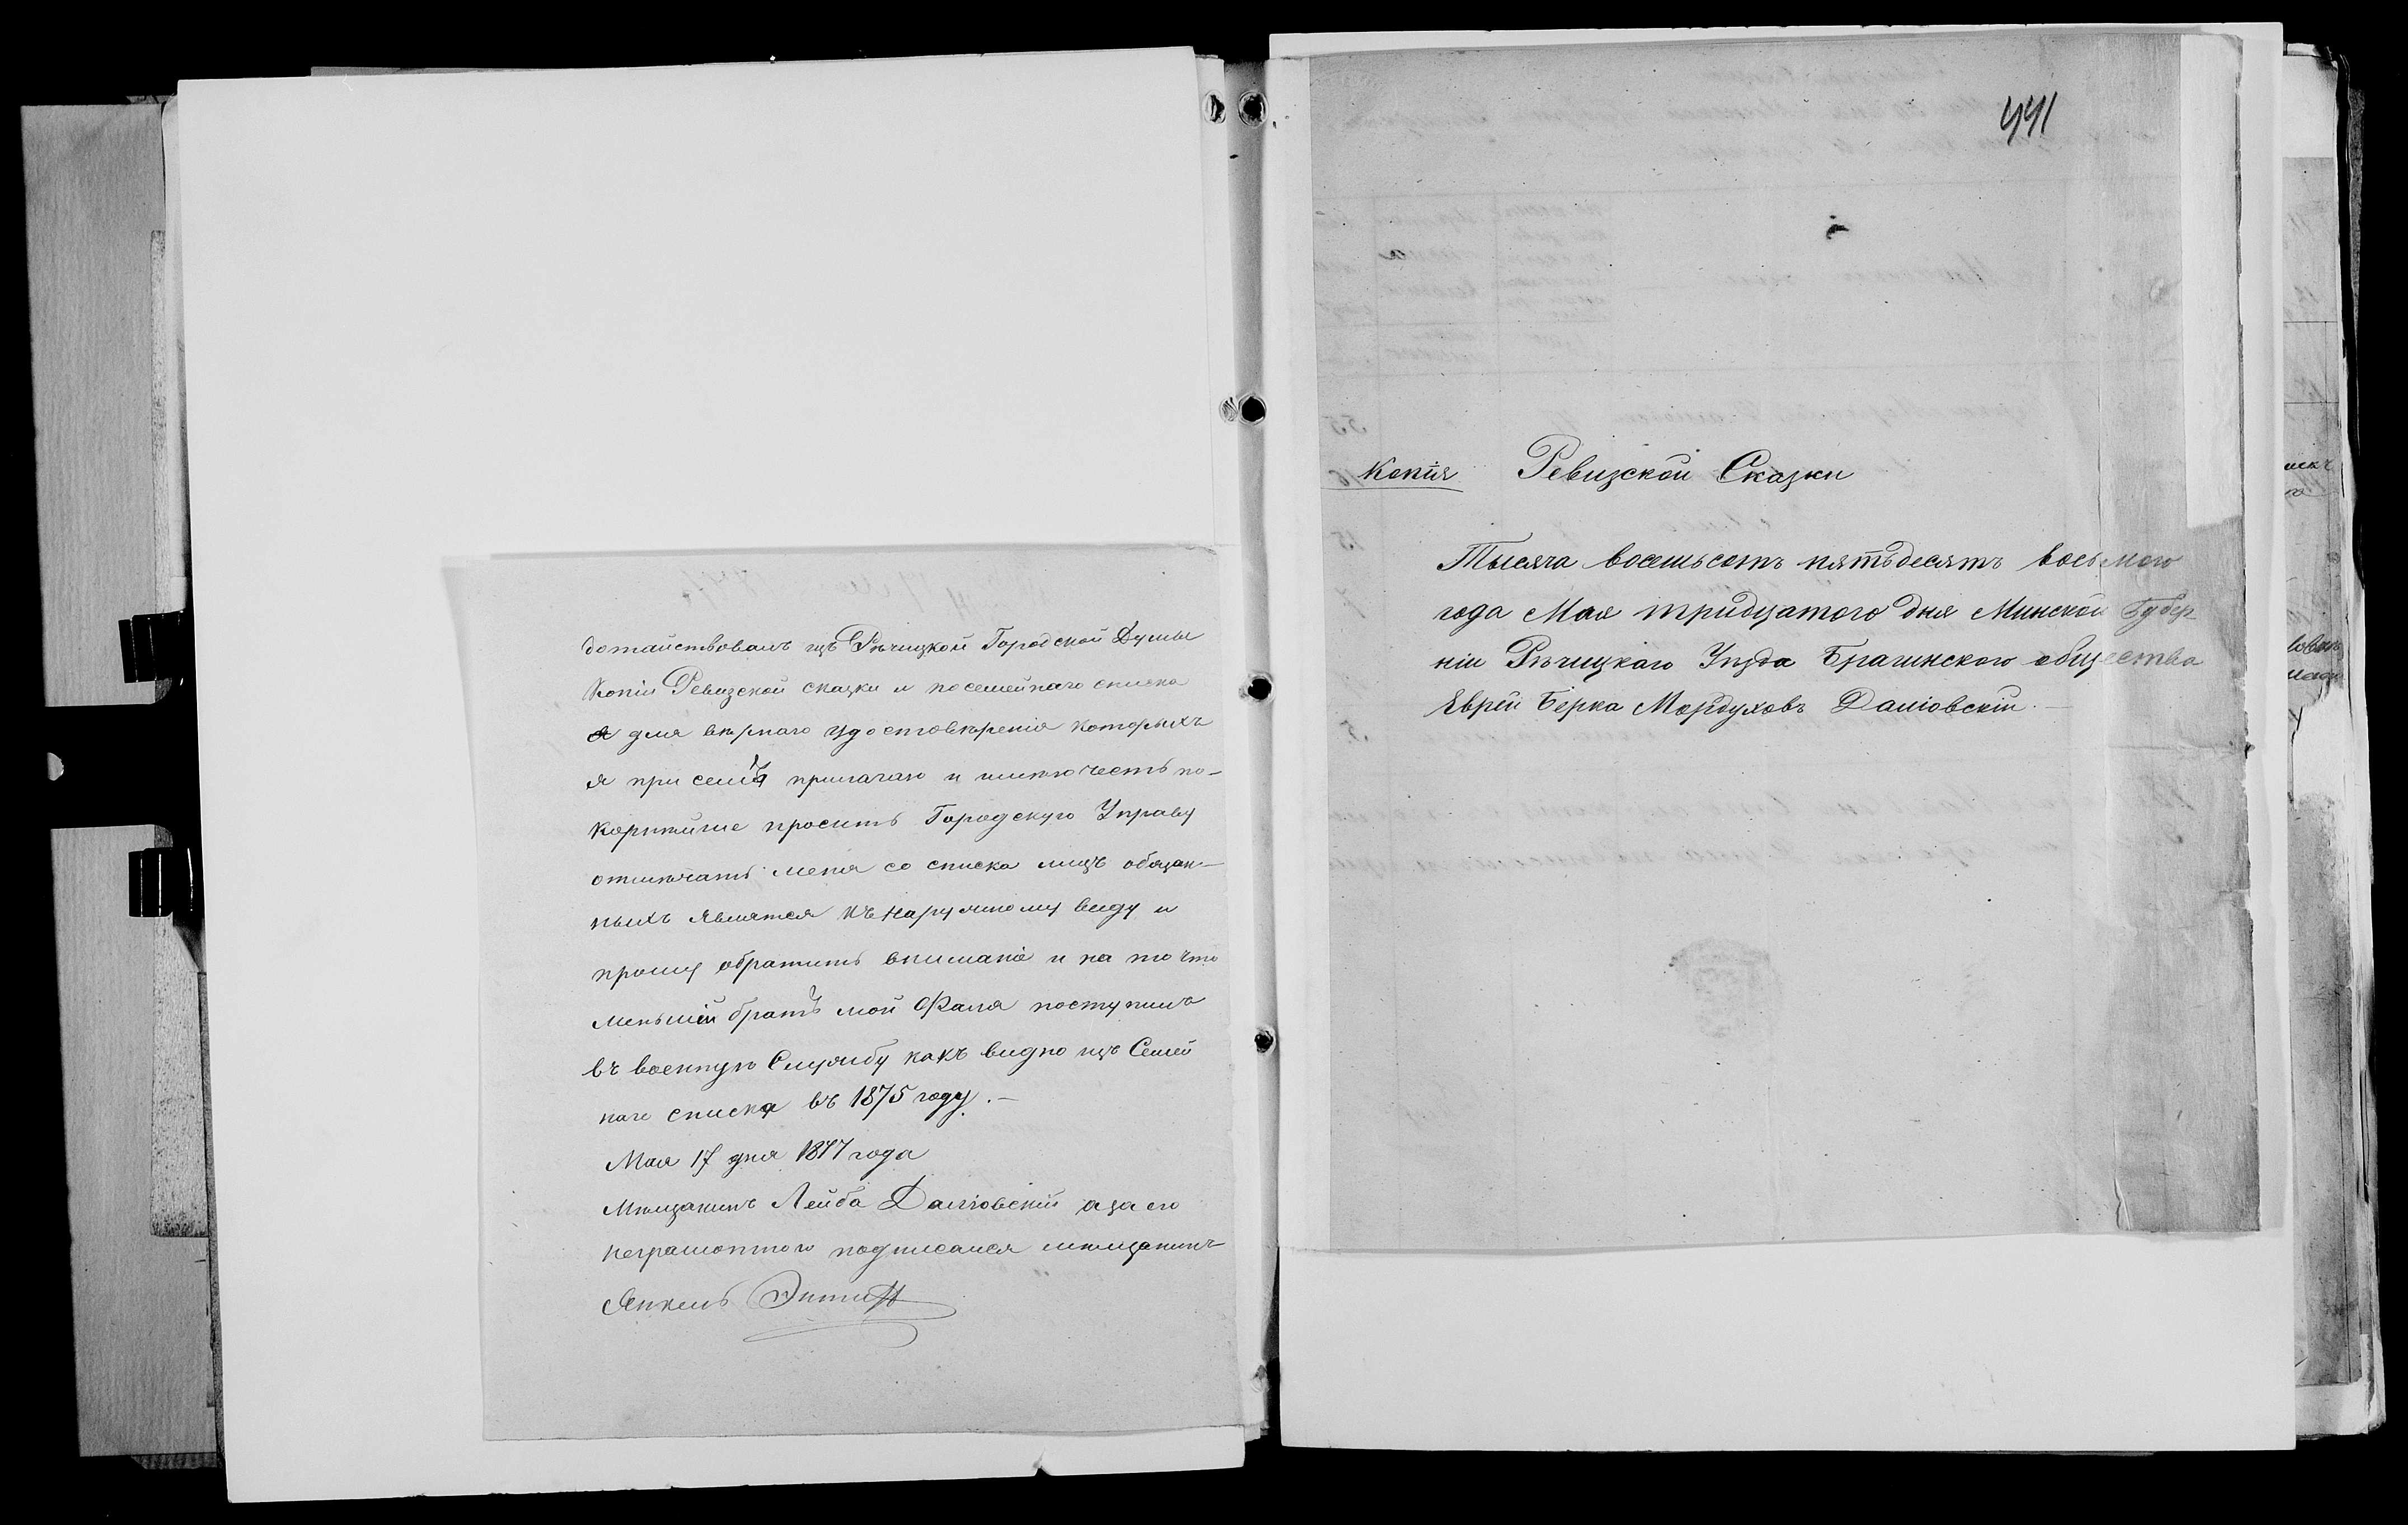 дотайствовалъ изъ Рѣчицкой Городской Думы
Копіи Ревизской сказки и посемейнаго списка
я для вѣрнаго удостовѣренія которыхъ
я при семъ прилагаю и имѣю честь по-
корнѣйше просить Городскую Управу
отмѣчать меня со списка лицъ обязан-
ныхъ являтся къ наружному виду и
прошу обратить вниманіе и на то что
меньшій братъ мой Фаля поступилъ
въ военную Службу какъ видно изъ Семей
наго списка въ 1875 году.—
Мая 17 дня 1877 года
Мѣщанинъ Лейба Далговскій а за его
неграмотного подписался мѣщанинъ
Янкель
441
Копія Ревизской Сказки
Тысяча восемьсотъ пятьдесятъ восьмого
года Мая тридцатого дня Минской Губер-
ніи Рѣчицкаго Уѣзда Брагинского общества
Еврей Берка Мордуховъ Далговскій.—